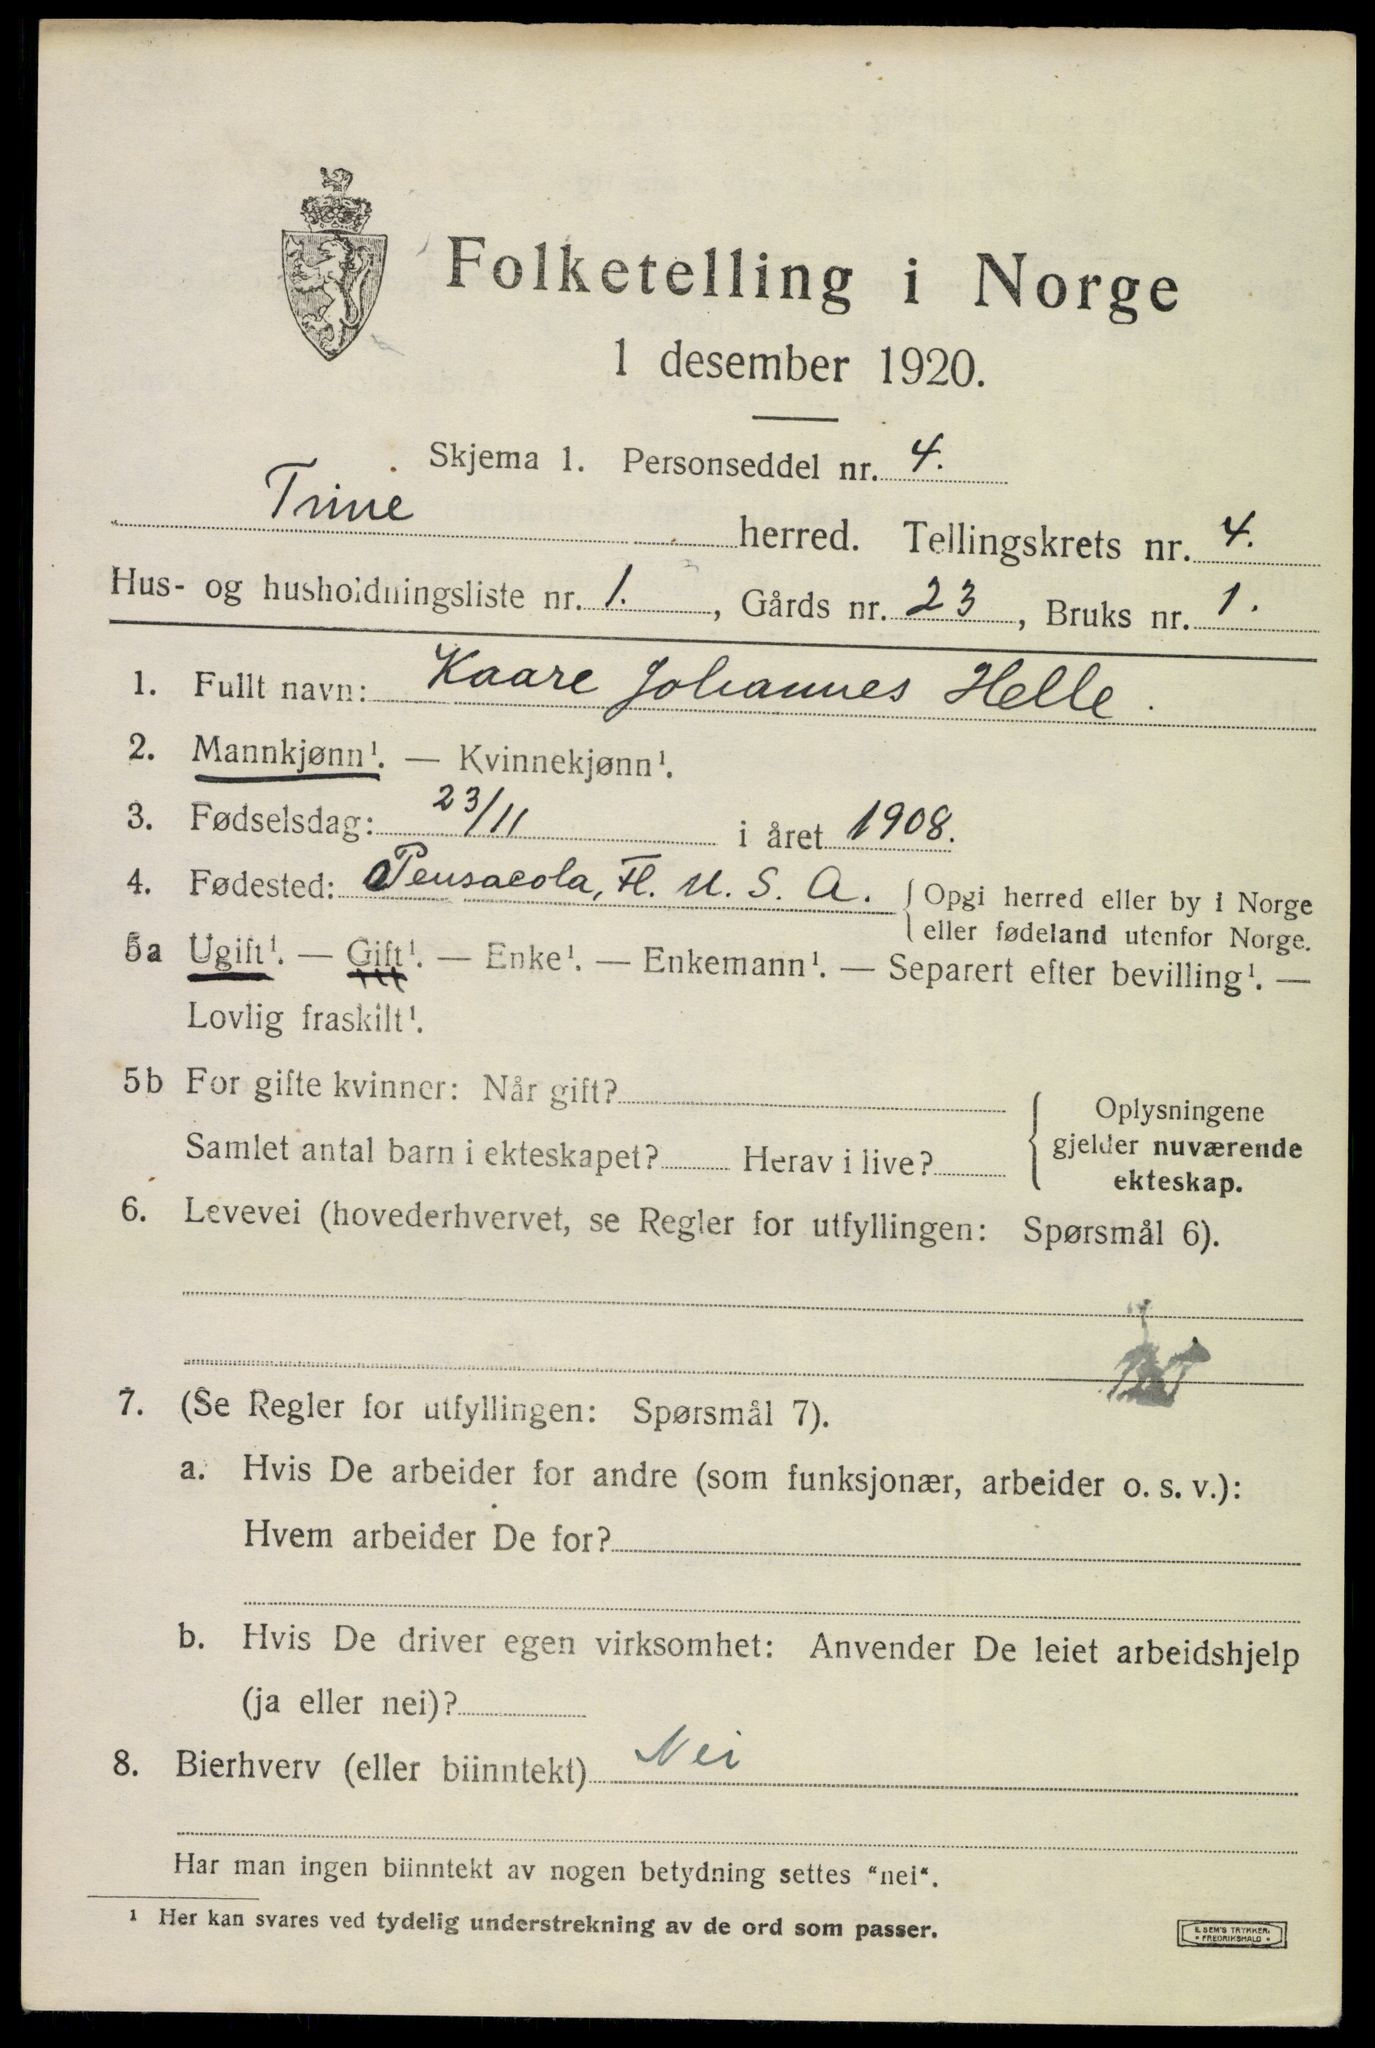 Folketelling i Norge
1 desember 1920.
Skjema 1. Personseddel nr. 4.
herred. Tellingskrets nr. 4.
Hus- og husholdningsliste nr. 1., Gårds nr. 23, Bruks nr. 1.
1. Fullt navn: Kaare Johannes Helle.
2. Mannkjønn¹. — Kvinnekjønn¹.
3. Fødselsdag: 23/11 i året 1908.
4. Fødested: Pensacola, Fl. U. S. A. { Opgi herred eller by i Norge
eller fødeland utenfor Norge.
5a Ugift¹. — Gift¹. — Enke¹. — Enkemann¹. — Separert efter bevilling¹. —
Lovlig fraskilt¹.
5b For gifte kvinner: Når gift?
Samlet antal barn i ekteskapet? Herav i live?
Oplysningene
gjelder nuværende
ekteskap.
6. Levevei (hovederhvervet, se Regler for utfyllingen: Spørsmål 6).
7. (Se Regler for utfyllingen: Spørsmål 7).
a. Hvis De arbeider for andre (som funksjonær, arbeider o. s. v.):
Hvem arbeider De for?
b. Hvis De driver egen virksomhet: Anvender De leiet arbeidshjelp
(ja eller nei)?
8. Bierhverv (eller biinntekt) Nei
Har man ingen biinntekt av nogen betydning settes "nei".
¹ Her kan svares ved tydelig understrekning av de ord som passer.
E. SEM'S TRYKKERI
FREDRIKSHALD